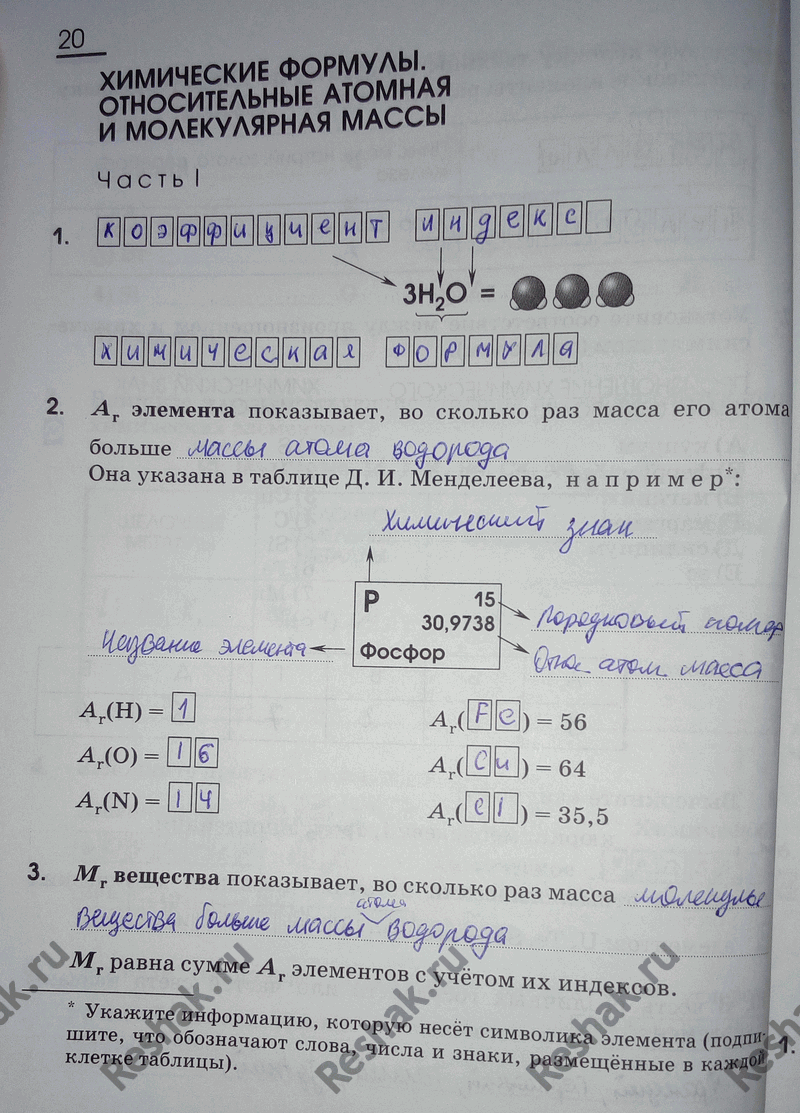 20
ХИМИЧЕСКИЕ ФОРМУЛЫ.
ОТНОСИТЕЛЬНЫЕ АТОМНАЯ
И МОЛЕКУЛЯРНАЯ МАССЫ
Часть I
1. коэффициент индекс
3H₂O =
химическая формула
2. Aᵣ элемента показывает, во сколько раз масса его атома
больше массы атома водорода
Она указана в таблице Д. И. Менделеева, например*:
Химический знак
P 15
30,9738 Порядковый номер
Название элемента Фосфор Отн. атом масса
Aᵣ(H) = 1 Aᵣ(Fe) = 56
Aᵣ(O) = 16 Aᵣ(Cu) = 64
Aᵣ(N) = 14 Aᵣ(Cl) = 35,5
3. Mᵣ вещества показывает, во сколько раз масса молекулы
атома
вещества больше массы водорода
Mᵣ равна сумме Aᵣ элементов с учётом их индексов.
* Укажите информацию, которую несёт символика элемента (подпи-
шите, что обозначают слова, числа и знаки, размещённые в каждой
клетке таблицы).
1.
Reshak.ru
Reshak.ru
Reshak.ru
Reshak.ru